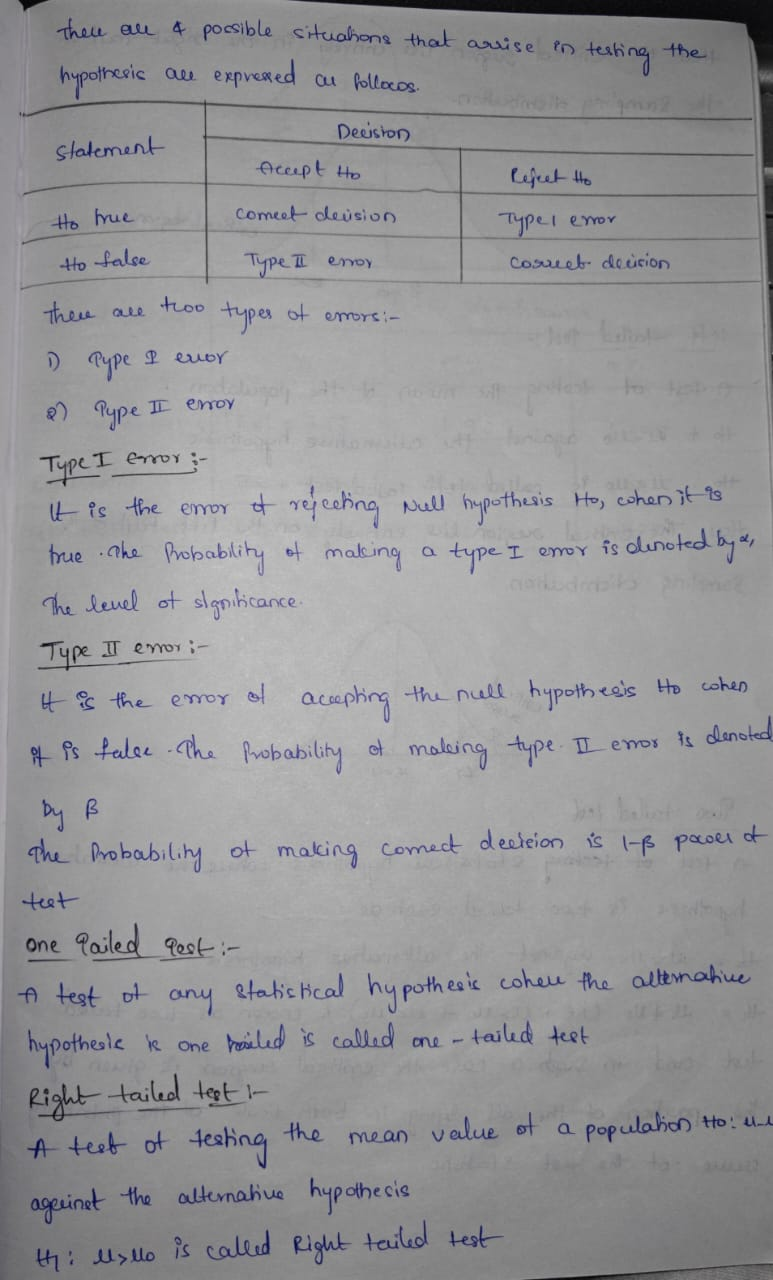 there are 4 possible situations that arise in testing the
hypothesis are expressed as follows.
Decision
Statement
Accept Ho
Reject Ho
Ho true
correct decision
Type I error
Ho false
Type II error
correct decision
there are two types of errors:-
1) Type I error
2) Type II error
Type I error :-
It is the error of rejecting Null hypothesis Ho, when it is
true. The Probability of making a type I error is denoted by α,
The level of significance.
Type II error :-
It is the error of accepting the null hypothesis Ho when
it is false. The Probability of making type II error is denoted
by β
The Probability of making correct decision is 1-β power of
test
one Tailed Test :-
A test of any statistical hypothesis where the alternative
hypothesis is one tailed is called one - tailed test
Right tailed test :-
A test of testing the mean value of a population Ho: μ
against the alternative hypothesis
H1: μ>μo is called Right tailed test